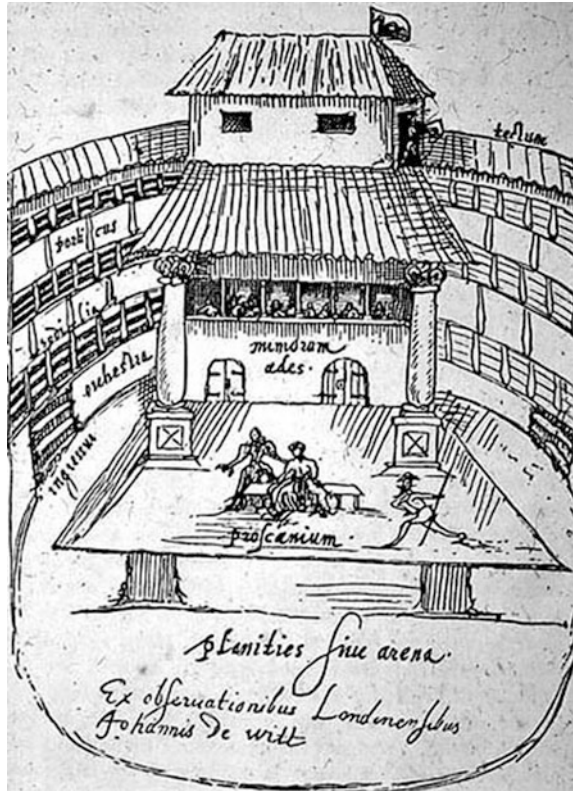 tectum
porticus
sedilia
orchestra
mimorum
ædes.
ingressus
proscænium.
planities sive arena.
Ex observationibus Londinensibus
Johannis de witt